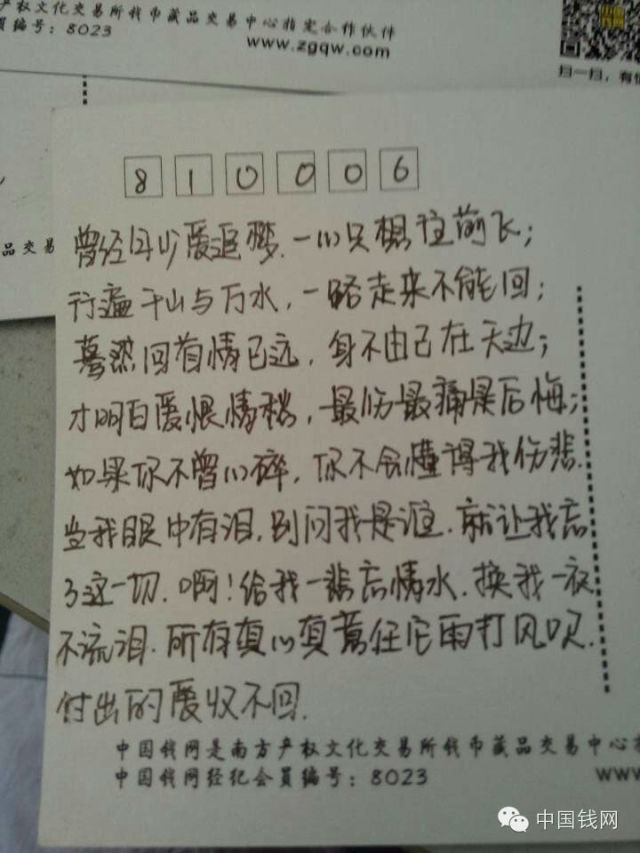 产权文化交易所钱币藏品交易中心指定合作伙伴
会员编号：8023
www.zgqw.com
扫一扫，有
品交易
810006
曾经年少爱追梦.一心只想往前飞；
行遍千山与万水，一路走来不能回；
蓦然回首情已远，身不由己在天边；
才明白爱恨情愁，最伤最痛是后悔；
如果你不曾心碎，你不会懂得我伤悲.
当我眼中有泪.别问我是谁.就让我忘
了这一切.啊！给我一杯忘情水.换我一夜
不流泪.所有真心真意任它雨打风吹.
付出的爱收不回.
中国钱网是南方产权文化交易所钱币藏品交易中心
中国钱网经纪会员编号：8023
www
中国钱网